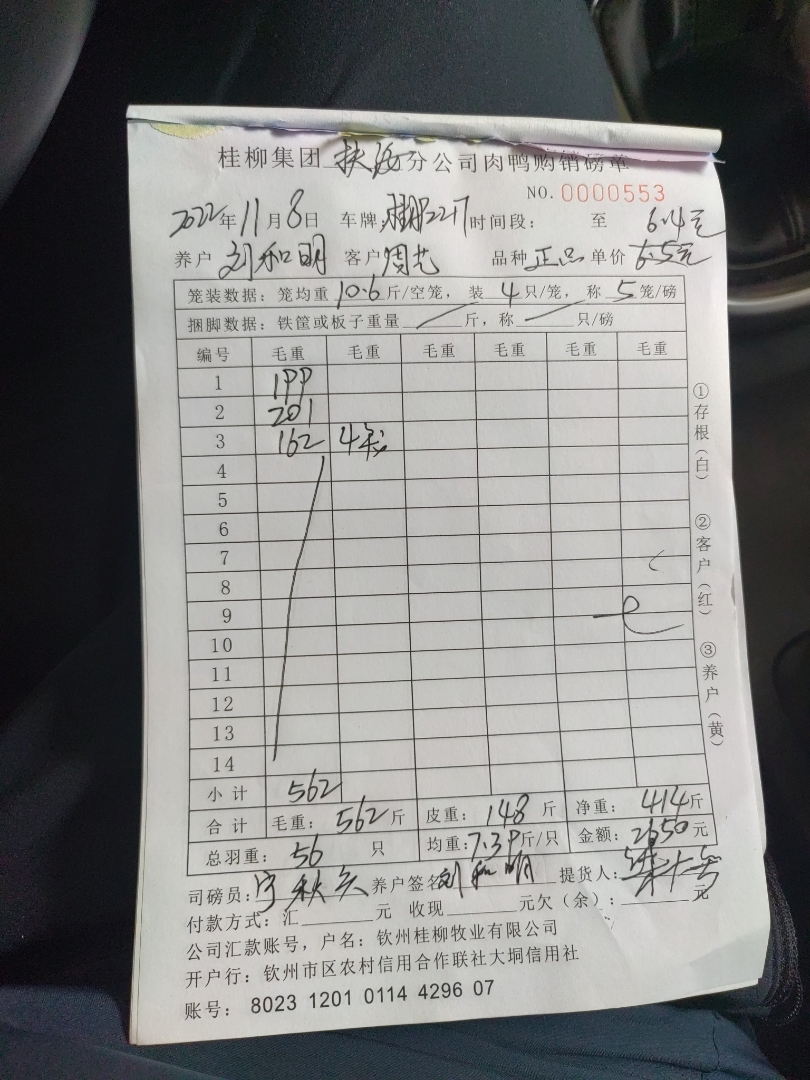 桂柳集团 扶绥 分公司肉鸭购销磅单
NO. 0000553
2022年11月8日 车牌: 2217 时间段: 至 6.4元
养户 刘和明 客户 周艺 品种 正品 单价 6.5元
笼装数据: 笼均重 10.6 斤/空笼, 装 4 只/笼, 称 5 笼/磅
捆脚数据: 铁筐或板子重量 斤, 称 只/磅
编号 毛重 毛重 毛重 毛重 毛重 毛重
1 199
2 201
3 162 4笼
4
5
6
7
8
9
10
11
12
13
14
小计 562
合计 毛重: 562 斤 皮重: 148 斤 净重: 414 斤
总羽重: 56 只 均重: 7.39 斤/只 金额: 2650 元
司磅员: 养户签名 刘和明 提货人:
付款方式: 汇 元 收现 元欠(余): 元
公司汇款账号, 户名: 钦州桂柳牧业有限公司
开户行: 钦州市区农村信用合作联社大垌信用社
账号: 8023 1201 0114 4296 07
①存根(白)
②客户(红)
③养户(黄)